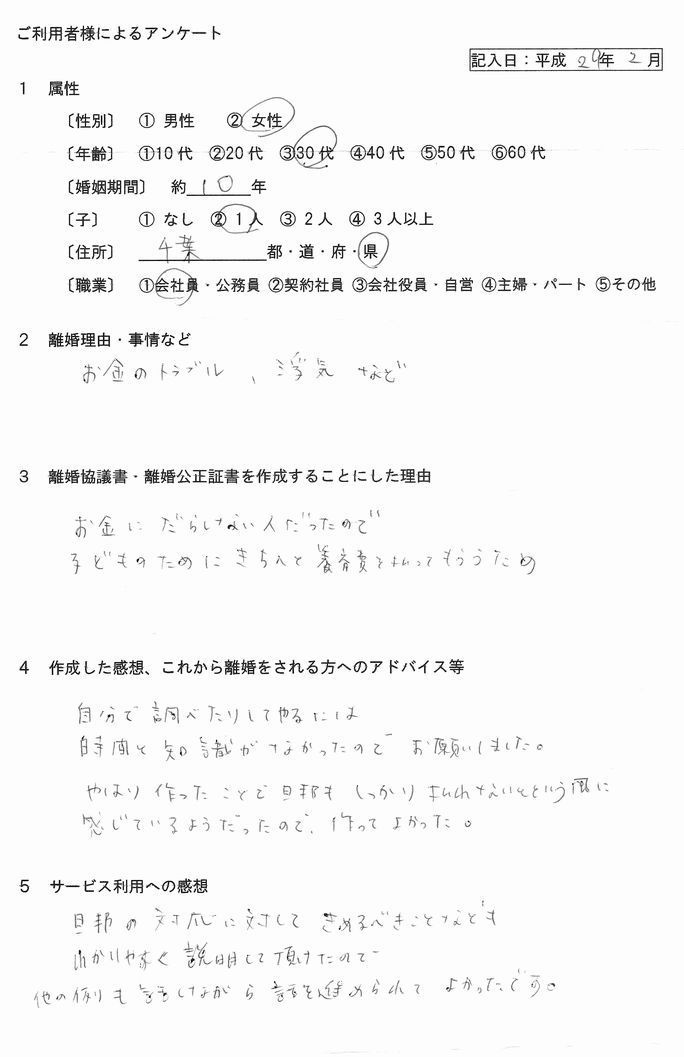 ご利用者様によるアンケート
記入日：平成 29年 2月
1 属性
〔性別〕 ① 男性 ② 女性
〔年齢〕 ①10代 ②20代 ③30代 ④40代 ⑤50代 ⑥60代
〔婚姻期間〕 約 10 年
〔子〕 ① なし ② 1人 ③ 2人 ④ 3人以上
〔住所〕 千葉 都・道・府・県
〔職業〕 ①会社員・公務員 ②契約社員 ③会社役員・自営 ④主婦・パート ⑤その他
2 離婚理由・事情など
お金のトラブル、浮気 など
3 離婚協議書・離婚公正証書を作成することにした理由
お金に だらしない人だったので
子どものために きちんと 養育費を払ってもらうため
4 作成した感想、これから離婚をされる方へのアドバイス等
自分で調べたりしてやるには
時間と知識がなかったので お願いしました。
やはり作ったことで旦那も しっかり 払わないとという風に
感じているようだったので、作ってよかった。
5 サービス利用への感想
旦那の対応に対して きめるべきことなども
わかりやすく説明して頂けたので
他の例も話しながら 話を進められて よかったです。